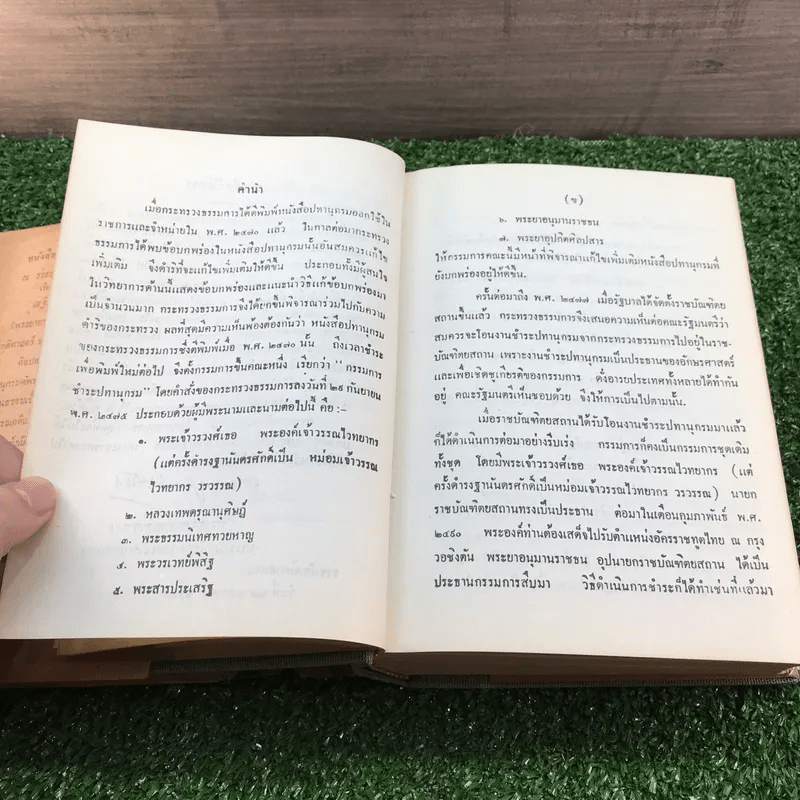 คำนำ
เมื่อกระทรวงธรรมการได้ตีพิมพ์หนังสือปทานุกรมออกใช้ใน
ราชการและจำหน่ายใน พ.ศ. ๒๔๗๐ แล้ว ในกาลต่อมากระทรวง
ธรรมการได้พบข้อบกพร่องในหนังสือปทานุกรมนั้นอันสมควรแก้ไข
เพิ่มเติม จึงดำริที่จะแก้ไขเพิ่มเติมให้ดีขึ้น ประกอบทั้งมีผู้สนใจ
ในวิทยาการด้านนี้แสดงข้อบกพร่องและแนะนำวิธีแก้ข้อบกพร่องมา
เป็นจำนวนมาก กระทรวงธรรมการจึงได้ยกขึ้นพิจารณาร่วมไปกับความ
ดำริของกระทรวง ผลที่สุดมีความเห็นพ้องต้องกันว่า หนังสือปทานุกรม
ของกระทรวงธรรมการซึ่งตีพิมพ์เมื่อ พ.ศ. ๒๔๗๐ นั้น ถึงเวลาชำระ
เพื่อพิมพ์ใหม่ต่อไป จึงตั้งกรรมการขึ้นคณะหนึ่ง เรียกว่า “กรรมการ
ชำระปทานุกรม” โดยคำสั่งของกระทรวงธรรมการลงวันที่ ๒๙ กันยายน
พ.ศ. ๒๔๗๕ ประกอบด้วยผู้มีพระนามและนามต่อไปนี้ คือ :—
๑. พระเจ้าวรวงศ์เธอ พระองค์เจ้าวรรณไวทยากร
(แต่ครั้งดำรงฐานันดรศักดิ์เป็น หม่อมเจ้าวรรณ
ไวทยากร วรวรรณ)
๒. หลวงเทพดรุณานุศิษฏ์
๓. พระธรรมนิเทศทวยหาญ
๔. พระวรเวทย์พิสิฐ
๕. พระสารประเสริฐ
(ข)
๖. พระยาอนุมานราชธน
๗. พระยาอุปกิตศิลปสาร
ให้กรรมการคณะนี้มีหน้าที่พิจารณาแก้ไขเพิ่มเติมหนังสือปทานุกรมที่
ยังบกพร่องอยู่ให้ดีขึ้น
ครั้นต่อมาถึง พ.ศ. ๒๔๗๗ เมื่อรัฐบาลได้จัดตั้งราชบัณฑิตย
สถานขึ้นแล้ว กระทรวงธรรมการจึงเสนอความเห็นต่อคณะรัฐมนตรีว่า
สมควรจะโอนงานชำระปทานุกรมจากกระทรวงธรรมการไปอยู่ในราช-
บัณฑิตยสถาน เพราะงานชำระปทานุกรมเป็นประธานของอักษรศาสตร์
และเพื่อเชิดชูเกียรติของกรรมการ ดั่งอารยประเทศทั้งหลายได้ทำกัน
อยู่ คณะรัฐมนตรีเห็นชอบด้วย จึงให้การเป็นไปตามนั้น.
เมื่อราชบัณฑิตยสถานได้รับโอนงานชำระปทานุกรมมาแล้ว
ก็ได้ดำเนินการต่อมาอย่างรีบเร่ง กรรมการก็คงเป็นกรรมการชุดเดิม
ทั้งชุด โดยมีพระเจ้าวรวงศ์เธอ พระองค์เจ้าวรรณไวทยากร (แต่
ครั้งดำรงฐานันดรศักดิ์เป็นหม่อมเจ้าวรรณไวทยากร วรวรรณ) นายก
ราชบัณฑิตยสถานทรงเป็นประธาน ต่อมาในเดือนกุมภาพันธ์ พ.ศ.
๒๔๙๐ พระองค์ท่านต้องเสด็จไปรับตำแหน่งอัครราชทูตไทย ณ กรุง
วอชิงตัน พระยาอนุมานราชธน อุปนายกราชบัณฑิตยสถาน ได้เป็น
ประธานกรรมการสืบมา วิธีดำเนินการชำระก็ได้ทำเช่นที่แล้วมา